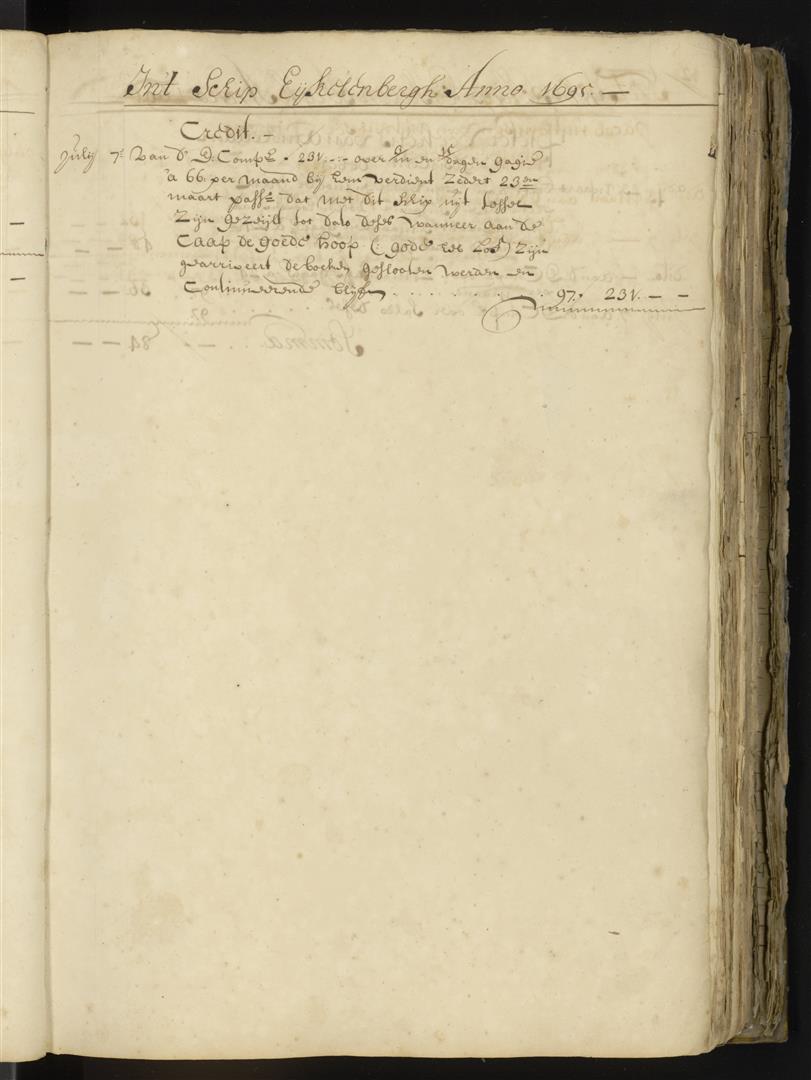 Int Schip Eijkelenbergh Anno 1695. —
Credit. —
Julij 7e Van d' E: Compe. 231.-:- over 3/m en 15 dagen gagie
a 66. per maand bij hem verdient zedert 23en
maart passo dat met dit schip uijt tessel
zijn gezeijlt tot dato deses wanneer aan de
Caap de goede hoop (: gode zee Loff) zijn
gearriveert de boeken geslooten werden en
Continueerende blijft . . . . . . . . 97. 231. — —